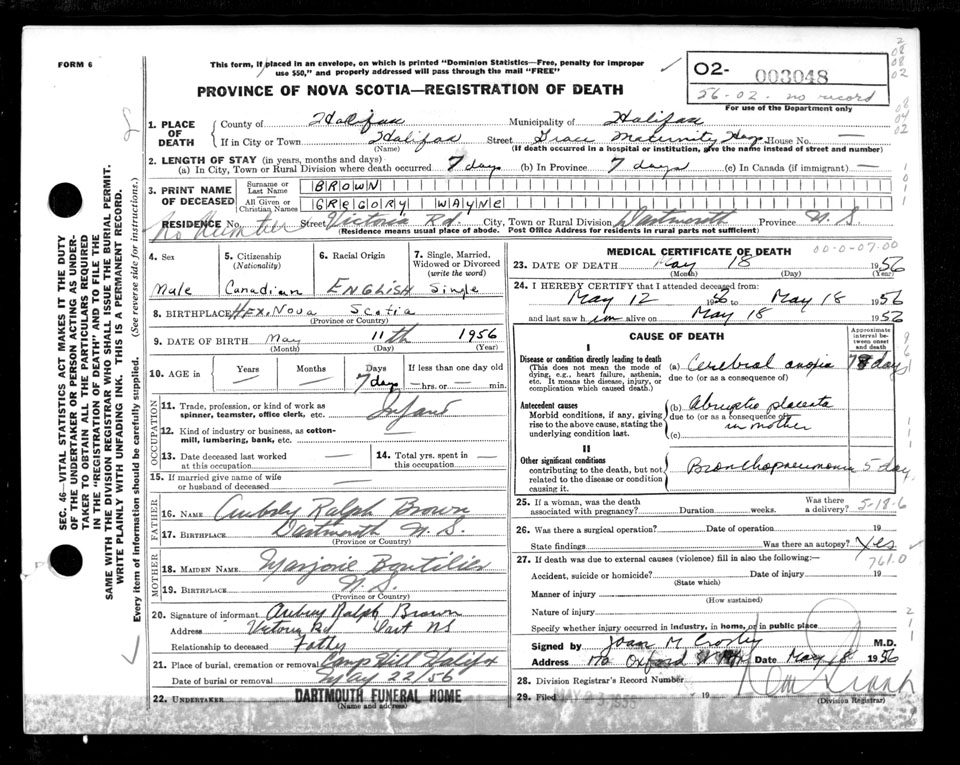 FORM 6
This form, if placed in an envelope, on which is printed "Dominion Statistics—Free, penalty for improper
use $50," and properly addressed will pass through the mail "FREE"
O2- 003048
56-02. no record
For use of the Department only
PROVINCE OF NOVA SCOTIA—REGISTRATION OF DEATH
SEC. 46—VITAL STATISTICS ACT MAKES IT THE DUTY
OF THE UNDERTAKER OR PERSON ACTING AS UNDER-
TAKER TO OBTAIN ALL THE PARTICULARS REQUIRED
IN THE "REGISTRATION OF DEATH" AND TO FILE THE
SAME WITH THE DIVISION REGISTRAR WHO SHALL ISSUE THE BURIAL PERMIT.
WRITE PLAINLY WITH UNFADING INK. THIS IS A PERMANENT RECORD.
Every item of information should be carefully supplied. (See reverse side for instructions.)
1. PLACE OF DEATH
County of Halifax Municipality of Halifax
If in City or Town Halifax Street Grace Maternity Hosp House No. —
(Name) (If death occurred in a hospital or institution, give the name instead of street and number)
2. LENGTH OF STAY (in years, months and days)
(a) In City, Town or Rural Division where death occurred 7 days (b) In Province 7 days (c) In Canada (if immigrant) —
3. PRINT NAME OF DECEASED
Surname or Last Name BROWN
All Given or Christian Names GREGORY WAYNE
RESIDENCE No Number Street Victoria Rd. City, Town or Rural Division Dartmouth Province N. S.
(Residence means usual place of abode. Post Office Address for residences in rural parts not sufficient)
4. Sex Male
5. Citizenship (Nationality) Canadian
6. Racial Origin ENGLISH
7. Single, Married, Widowed or Divorced (write the word) Single
8. BIRTHPLACE HFX. Nova Scotia
(Province or Country)
9. DATE OF BIRTH May 11th 1956
(Month) (Day) (Year)
10. AGE in Years — Months — Days 7 days If less than one day old — hrs. or — min.
OCCUPATION
11. Trade, profession, or kind of work as spinner, teamster, office clerk, etc. Infant
12. Kind of industry or business, as cotton-mill, lumbering, bank, etc. —
13. Date deceased last worked at this occupation —
14. Total yrs. spent in this occupation —
15. If married give name of wife or husband of deceased —
FATHER
16. NAME Aubrey Ralph Brown
17. BIRTHPLACE Dartmouth N. S.
(Province or Country)
MOTHER
18. MAIDEN NAME Marjorie Boutilier
19. BIRTHPLACE N.S.
(Province or Country)
20. Signature of informant Aubrey Ralph Brown
Address Victoria Rd Dart NS
Relationship to deceased Father
21. Place of burial, cremation or removal Camp Hill Halifax
Date of burial or removal May 22/56
22. UNDERTAKER DARTMOUTH FUNERAL HOME
(Name and address)
MEDICAL CERTIFICATE OF DEATH
00-0-07.00
23. DATE OF DEATH May 18 1956
(Month) (Day) (Year)
24. I HEREBY CERTIFY that I attended deceased from:
May 12 1956 to May 18 1956
and last saw him alive on May 18 1956
CAUSE OF DEATH
Approximate interval between onset and death
I
Disease or condition directly leading to death
(This does not mean the mode of dying, e.g., heart failure, asthenia, etc. It means the disease, injury, or complication which caused death.)
(a) Cerebral anoxia 7 days
due to (or as a consequence of)
Antecedent causes
Morbid conditions, if any, giving rise to the above cause, stating the underlying condition last.
(b) Abruptio placenta
due to (or as a consequence of)
in mother
(c)
II
Other significant conditions
contributing to the death, but not related to the disease or condition causing it.
Bronchopneumonia 5 days
25. If a woman, was the death associated with pregnancy? Duration weeks. Was there a delivery?
5-18-6
26. Was there a surgical operation? Date of operation 19
State findings Was there an autopsy? Yes
761.0
27. If death was due to external causes (violence) fill in also the following:
Accident, suicide or homicide? Date of injury 19
(State which)
Manner of injury
(How sustained)
Nature of injury
Specify whether injury occurred in industry, in home, or in public place
Signed by Joan M Crosby M.D.
Address 170 Oxford St Hfx Date May 18 1956
28. Division Registrar's Record Number
29. Filed 19
(Division Registrar)